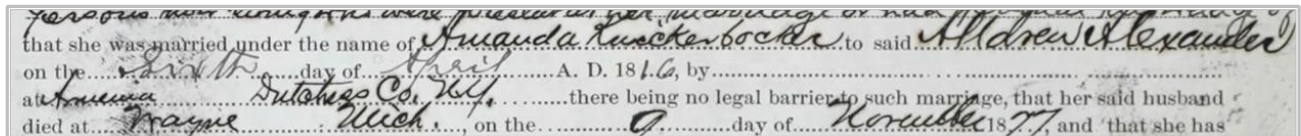 persons now living who were present at her marriage or had
that she was married under the name of Amanda Knickerbocker to said Alldrew Alexander
on the Sixth day of April A. D. 1816, by
at Amenia Dutchess Co. N.Y. there being no legal barrier to such marriage, that her said husband
died at Wayne Mich., on the 9 day of November 1877, and that she has